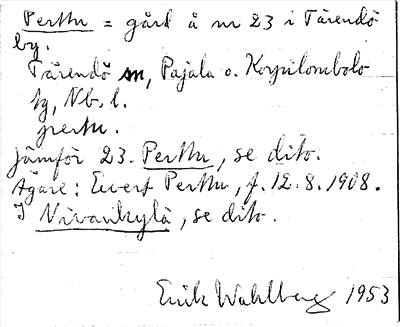 Perttu = gård å nr 23 i Tärendö
by.
Tärendö sn, Pajala o. Korpilombolo
tg, Nb. l.
perttu.
Jämför 23. Perttu, se dito.
Ägare: Evert Perttu, f. 12.8.1908.
I Nivankylä, se dito.
Erik Wahlberg 1953